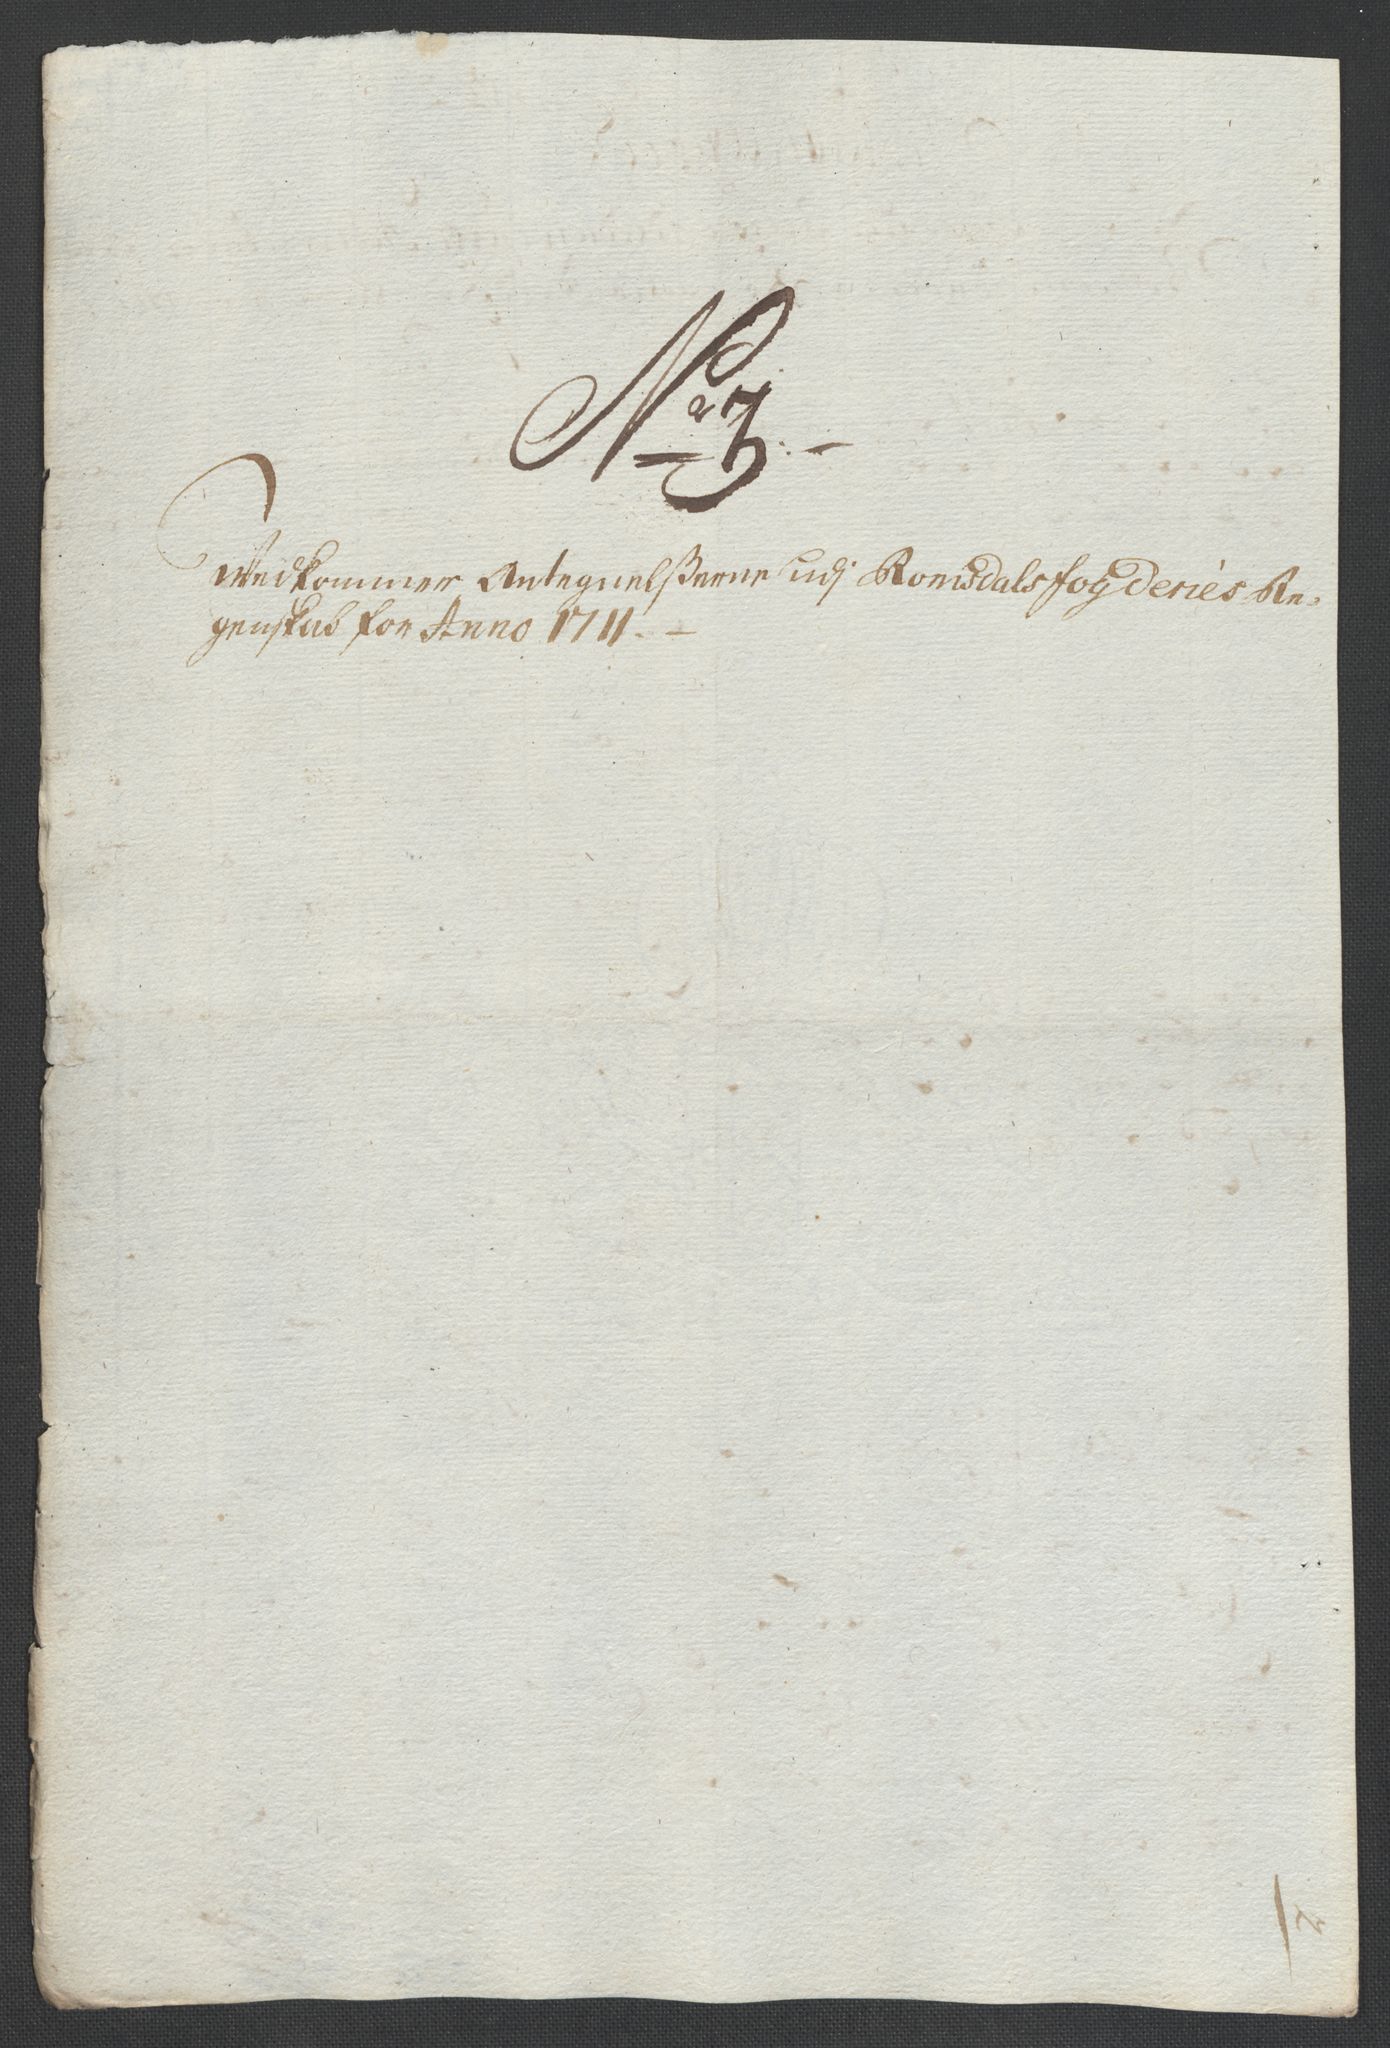 No 3.
Wedkommer Antegnelsserne udj Romsdals fogderies Re-
genskab for Anno 1711.
2